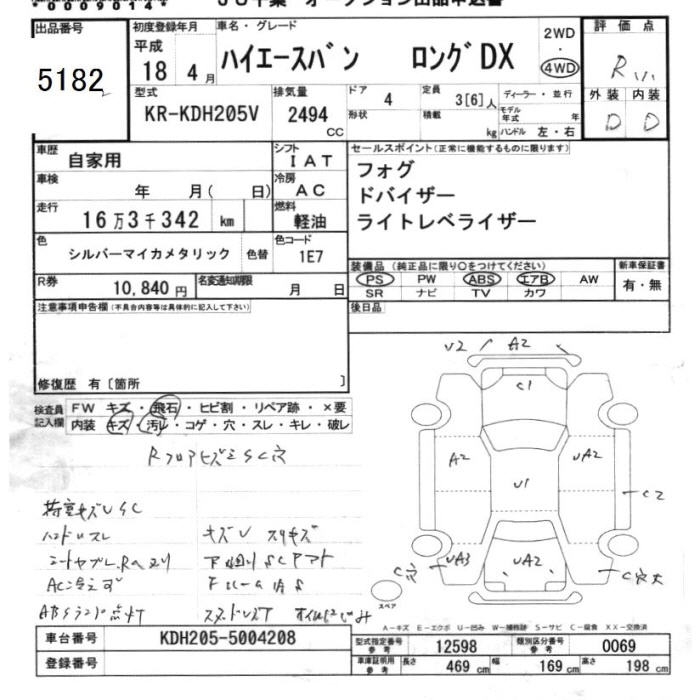 出品番号 初度登録年月 車名・グレード 2WD・4WD 評価点
5182 平成18年4月 ハイエースバン ロングDX R
型式 KR-KDH205V 排気量 2494 CC ドア 4 形状 定員 3[6]人 積載 kg ディーラー・並行 モデル年式 年 ハンドル 左・右 外装 D 内装 D
車歴 自家用 シフト IAT セールスポイント(正常に機能するものに限ります)
車検 年 月( 日) 冷房 AC フォグ
ドバイザー
走行 16万3千342 km 燃料 軽油 ライトレベライザー
色 シルバーマイカメタリック 色替 色コード 1E7 装備品 (純正品に限り○をつけてください) 新車保証書
PS PW ABS エアB AW 有・無
SR ナビ TV カワ
R券 10,840円 名変通知期限 月 日 後日品
注意事項申告欄(不具合内容等は具体的に記入して下さい)
修復歴 有〔箇所 〕
検査員記入欄 FW キズ・飛石・ヒビ割・リペア跡・×要
内装 キズ・汚レ・コゲ・穴・スレ・キレ・破レ
U2 A2
C1
A2 U1 UA2
C2
UA3 UA2
C穴 C穴大
スペア
ハンドルスレ キズU
AC冷えず
ABSランプ点灯
A−キズ E−エクボ U−凹み W−補修跡 S−サビ C−腐食 XX−交換済
車台番号 KDH205-5004208 型式指定番号 参考 12598 類別区分番号 参考 0069
登録番号 車庫証明用 参考 長さ 469 cm 幅 169 cm 高さ 198 cm